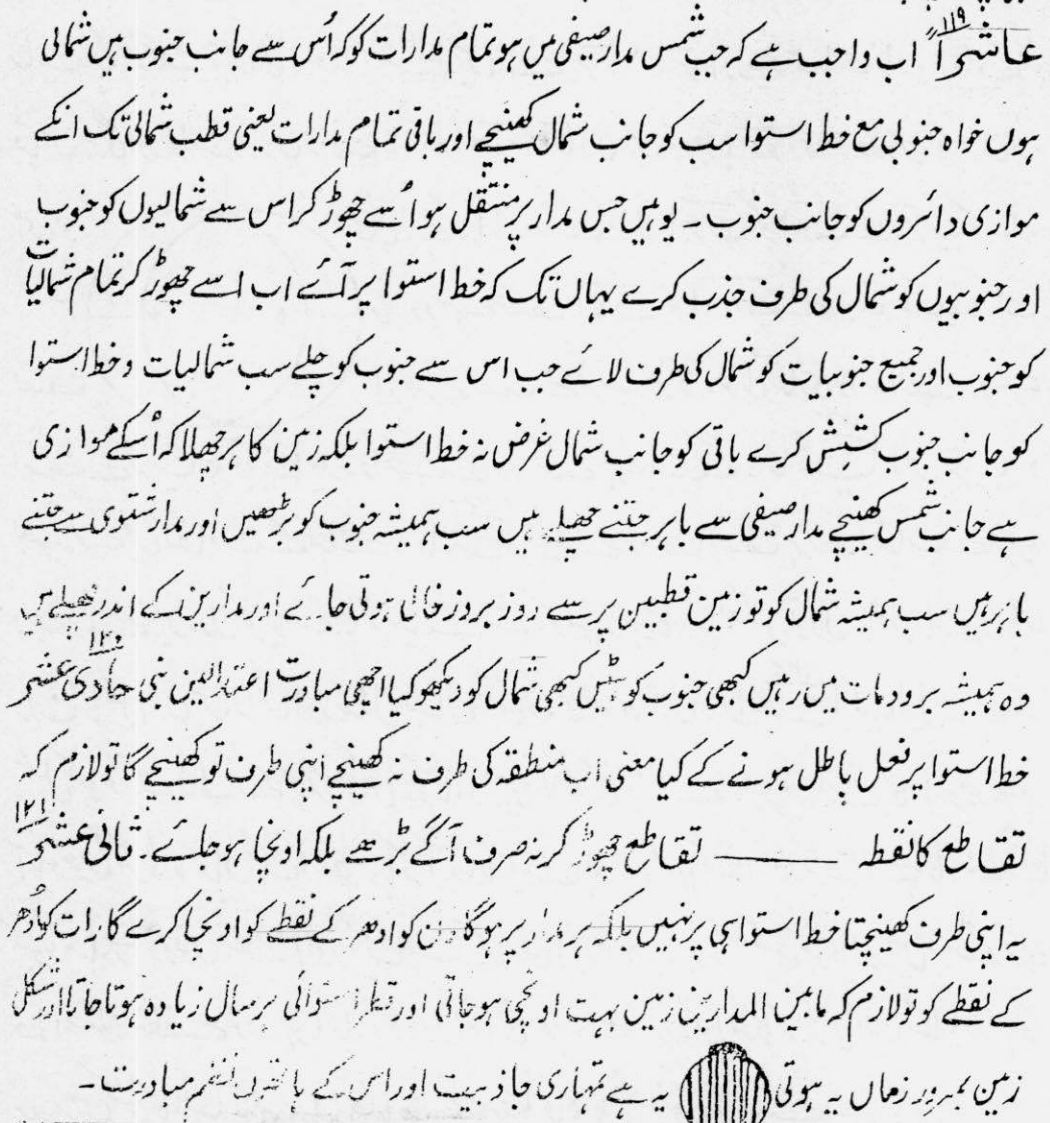 عاشراً ۱۱۹ اب واجب ہے کہ جب شمس مدار صیفی میں ہو تمام مدارات کو کہ اُس سے جانب جنوب ہیں شمالی
ہوں خواہ جنوبی مع خط استوا سب کو جانب شمال کھینچے اور باقی تمام مدارات یعنی قطب شمالی تک انکے
موازی دائروں کو جانب جنوب ۔ یوہیں جس مدار پر منتقل ہو اُسے چھوڑ کر اس سے شمالیوں کو جنوب
اور جنوبیوں کو شمال کی طرف جذب کرے یہاں تک کہ خط استوا پر آئے اب اسے چھوڑ کر تمام شمالیات
کو جنوب اور جمیع جنوبیات کو شمال کی طرف لائے جب اس سے جنوب کو چلے سب شمالیات و خط استوا
کو جانب جنوب کشش کرے باقی کو جانب شمال غرض نہ خط استوا بلکہ زمین کا ہر چھلا کہ اُسکے موازی
ہے جانب شمس کھینچے مدار صیفی سے باہر جتنے چھلے ہیں سب ہمیشہ جنوب کو بڑھیں اور مدار شتوی سے جتنے
باہر ہیں سب ہمیشہ شمال کو تو زمین قطبین پر سے روز بروز خالی ہوتی جائے اور مدارین کے اندر چھلے ہیں
وہ ہمیشہ میں رہیں کبھی جنوب کو ہٹیں کبھی شمال کو دیکھو کیا اچھی مبادرت اعتدالین بنی حادی عشر ۱۲۰
خط استوا پر فعل باطل ہونے کے کیا معنی اب منطقہ کی طرف نہ کھینچے اپنی طرف تو کھینچے گا تو لازم کہ
تقاطع کا نقطہ ــــــــ تقاطع چھوڑ کر نہ صرف آگے بڑھے بلکہ اونچا ہو جائے ۔ ثانی عشر ۱۲۱
یہ اپنی طرف کھینچتا خط استوا ہی پر نہیں بلکہ ہر مدار پر ہوگا دن کو ادھر کے نقطے کو اونچا کرے گا رات کو اُدھر
کے نقطے کو تو لازم کہ مابین المدارین زمین بہت اونچی ہو جاتی اور قطر استوائی ہر سال زیادہ ہوتا جاتا اور شکل
زمین بمرور زماں یہ ہوتی یہ ہے تمہاری جاذبیت اور اس کے ہاتھوں مبادرت ۔